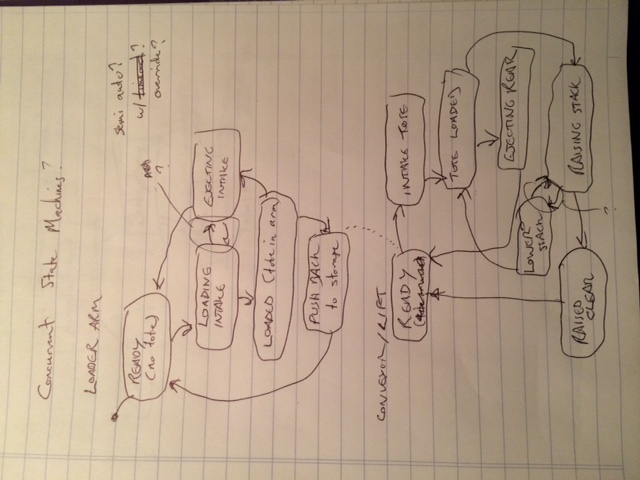 Concurrent State Machines?
LOADER ARM
semi auto?
w/ ?
override?
READY
(no tote)
?
LOADING
INTAKE
EJECTING
INTAKE
LOADED (tote in arm)
PUSH BACK
to storage
CONVEYOR/LIFT
READY
INTAKE TOTE
TOTE LOADED
EJECTING REAR
LOWER
STACK
RAISED
CLEAR
RAISING STACK
?